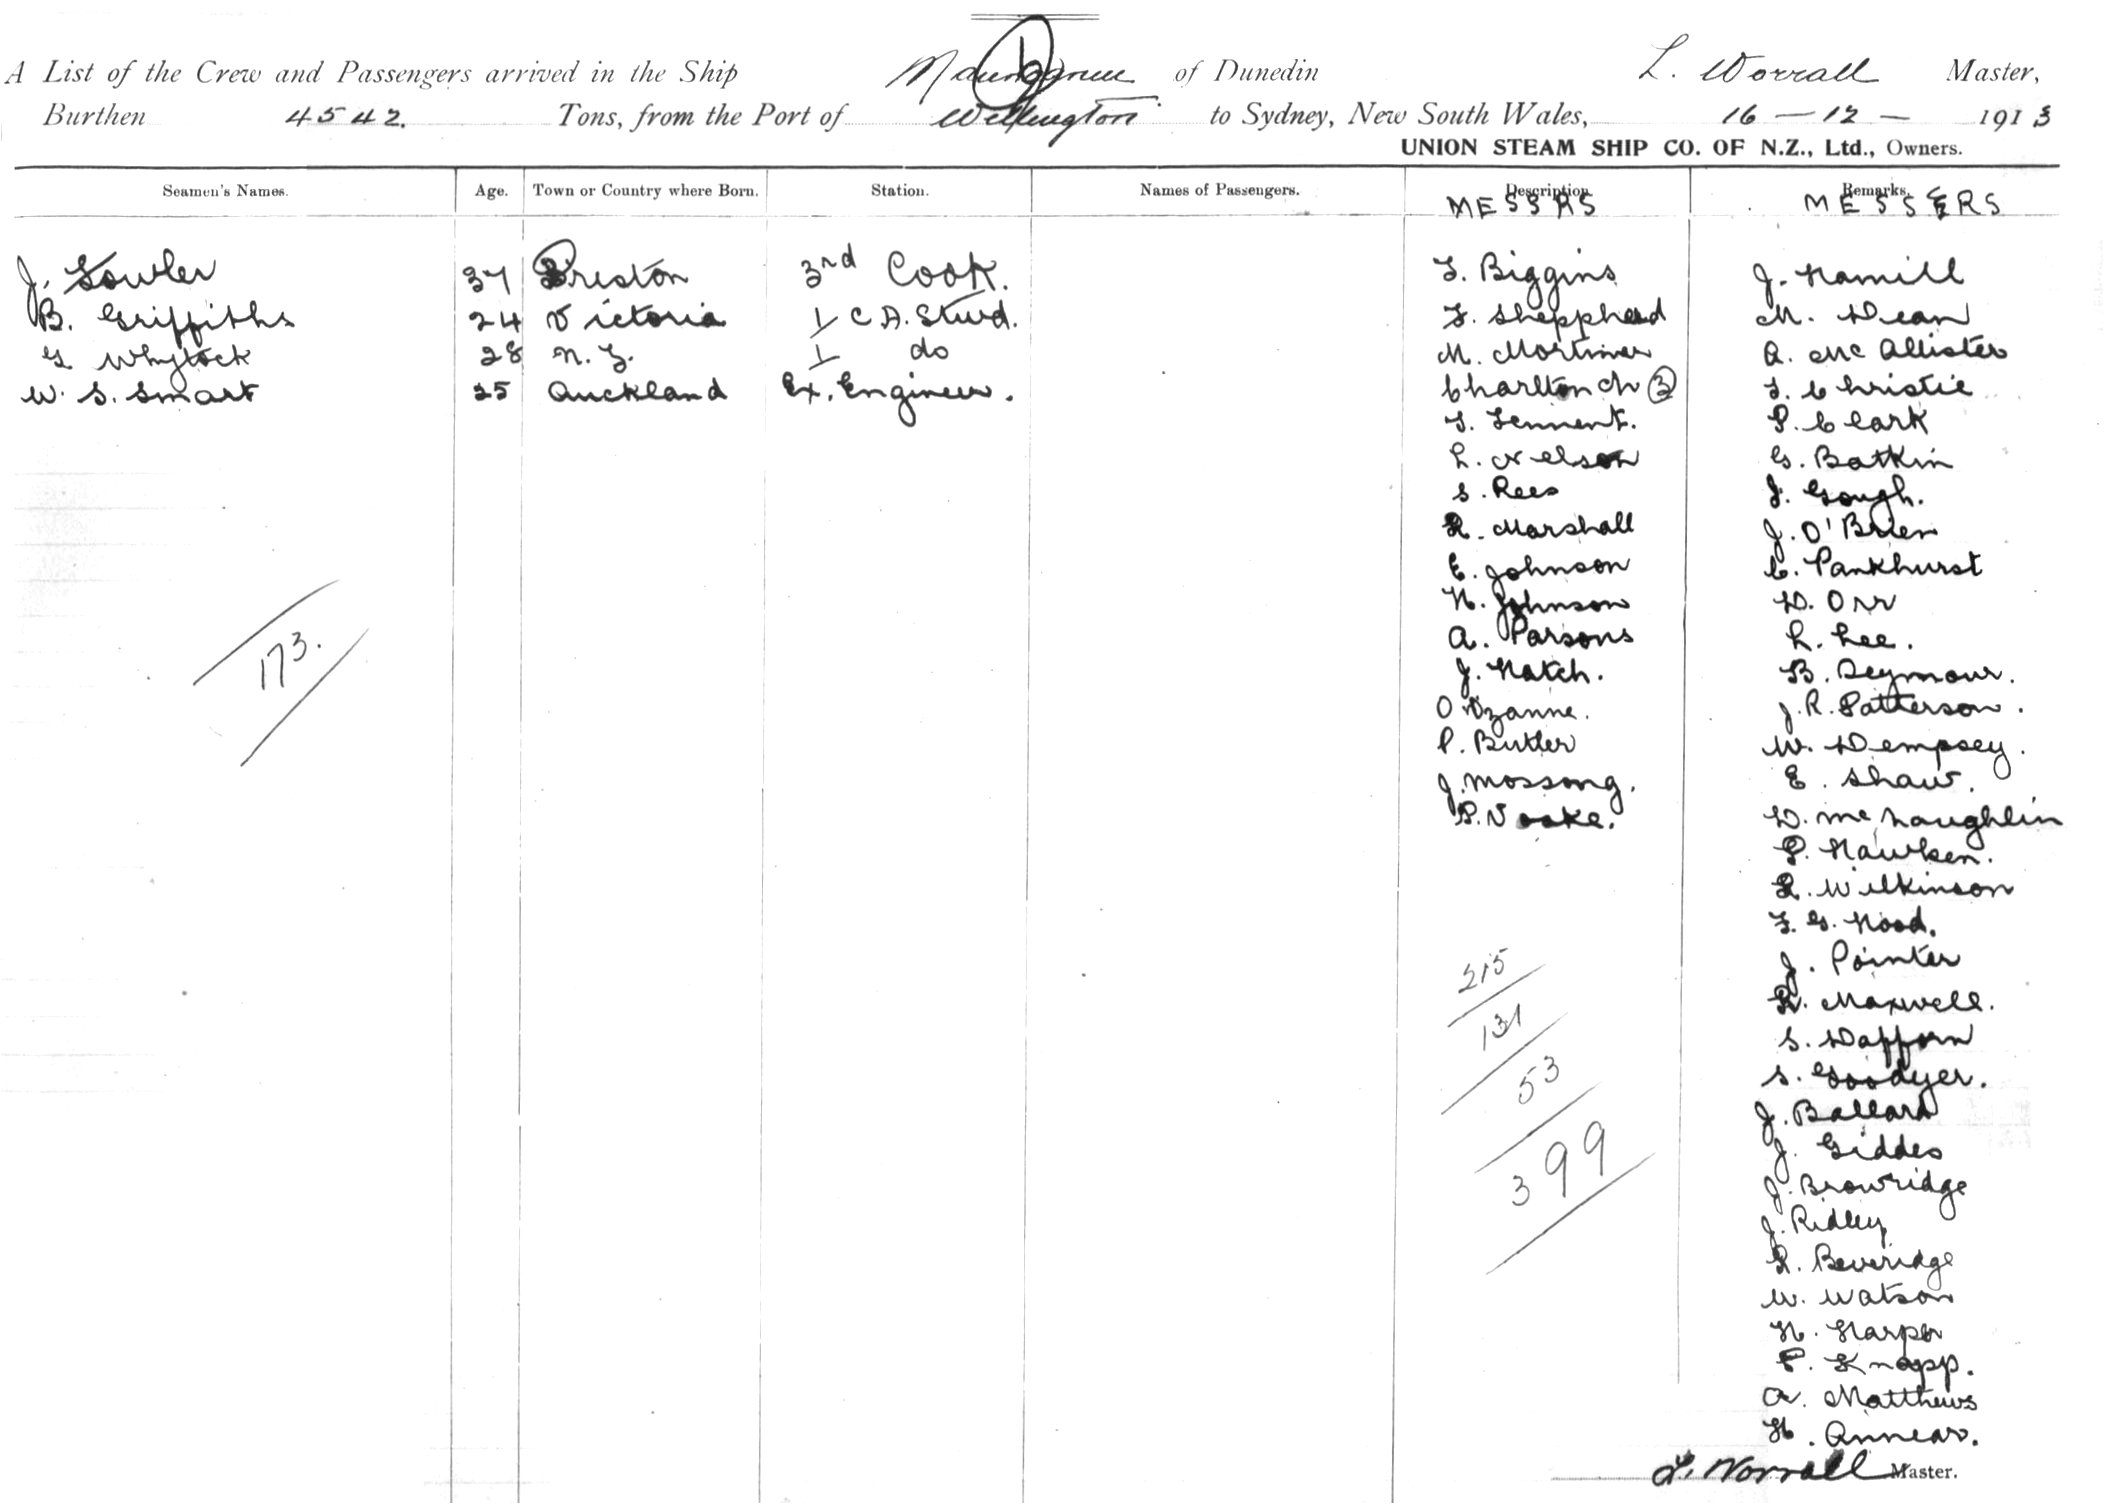 A List of the Crew and Passengers arrived in the Ship Maunganui of Dunedin L. Worrall Master,
Burthen 4542. Tons, from the Port of Wellington to Sydney, New South Wales, 16 — 12 — 1913
UNION STEAM SHIP CO. OF N.Z., Ltd., Owners.
Seamen's Names. Age. Town or Country where Born. Station. Names of Passengers. Description Remarks.
MESSRS MESSERS
J. Fowler 37 Preston 3rd Cook.
B. Griffiths 24 Victoria 1 C.A. Stwd.
G Whylock 28 N.Z. 1 do
W. S. Smart 25 Auckland Ex. Engineer.
173.
F. Biggins
F. Shepphead
M. Mortimer
Charlton Ch 3
F. Tennent.
L. Nelson
S. Rees
R. Marshall
E. Johnson
H. Johnson
A. Parsons
J. Hatch.
O Ozanne.
P. Butler
J. Mossong.
P.
215
131
53
399
J. Hamill
M. Dean
A. McAllister
F. Christie
P. Clark
G. Batkin
J. Gough.
J. O'Brien
C. Pankhurst
D. Orr
L. Lee.
B. Seymour.
J. R. Patterson.
W. Dempsey.
E. Shaw.
D. McNaughlin
P. Hawken.
R. Wilkinson
F. G. Hood.
J. Pointer
R. Maxwell.
S. Dafforn
S. Goodyer.
J. Ballard
J. Giddes
J. Browridge
J. Ridley
R. Beveridge
W. Watson
H. Harper
P. Knapp.
A. Matthews
H. Annear.
L. Worrall Master.